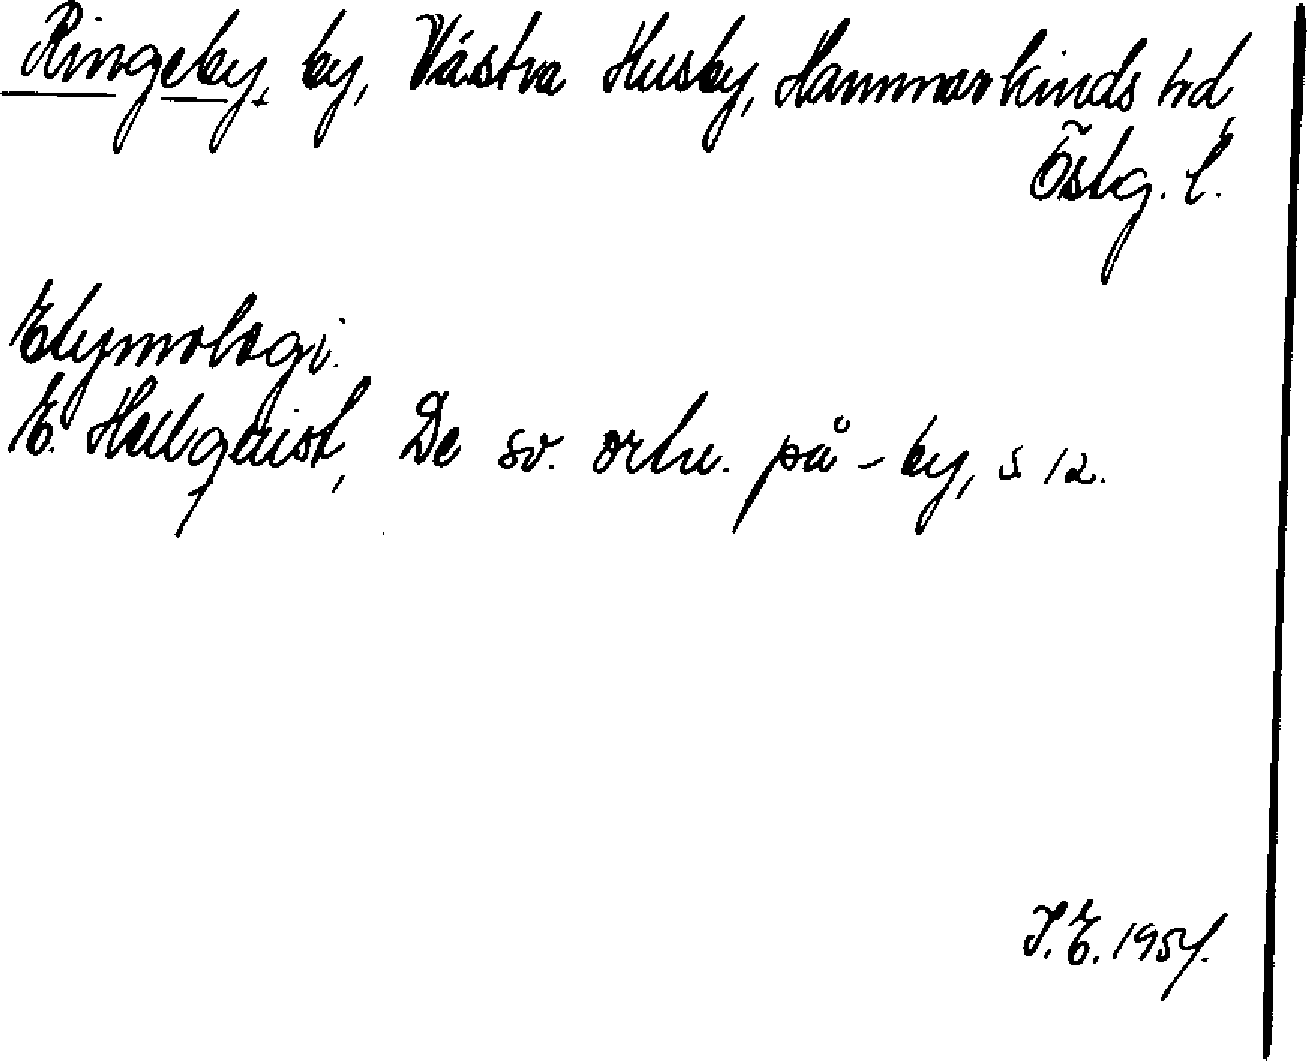 Ringeby, by, Västra Husby, Hammarkinds hd,
Östg. l.
Etymologi.
E. Hellquist, De sv. ortn. på -by, s 12.
I.E. 1954.